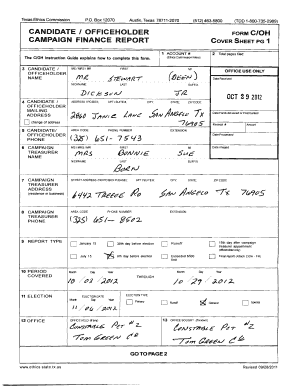 Texas Ethics Commission P.O. Box 12070 Austin, Texas 78711-2070 (512) 463-5800 (TDD 1-800-735-2989)
CANDIDATE / OFFICEHOLDER FORM C/OH
CAMPAIGN FINANCE REPORT COVER SHEET PG 1
The C/OH Instruction Guide explains how to complete this form.
1 ACCOUNT #
(Ethics Commission Filers)
2 Total pages filed:
3 CANDIDATE / OFFICEHOLDER NAME
MS / MRS / MR FIRST MI
MR STEWART (BEEN)
NICKNAME LAST SUFFIX
DICKSON JR
OFFICE USE ONLY
Date Received
OCT 29 2012
4 CANDIDATE / OFFICEHOLDER MAILING ADDRESS
change of address
ADDRESS / PO BOX; APT / SUITE #; CITY; STATE; ZIP CODE
2860 JANIE LANE SAN ANGELO TX
76905
Date Hand-delivered or Postmarked
Receipt # Amount
5 CANDIDATE / OFFICEHOLDER PHONE
AREA CODE PHONE NUMBER EXTENSION
(325) 651-7543
Date Processed
6 CAMPAIGN TREASURER NAME
MS / MRS / MR FIRST MI
MRS BONNIE SUE
NICKNAME LAST SUFFIX
BORN
Date Imaged
7 CAMPAIGN TREASURER ADDRESS
(residence or business)
STREET ADDRESS (NO PO BOX PLEASE); APT / SUITE #; CITY; STATE; ZIP CODE
SAN ANGELO TX 76905
8 CAMPAIGN TREASURER PHONE
AREA CODE PHONE NUMBER EXTENSION
(325) 651-8602
9 REPORT TYPE
January 15 30th day before election Runoff 15th day after campaign treasurer appointment (officeholder only)
July 15 8th day before election Exceeded $500 limit Final report (Attach C/OH - FR)
10 PERIOD COVERED
Month Day Year THROUGH Month Day Year
10 / 03 / 2012 10 / 29 / 2012
11 ELECTION
ELECTION DATE ELECTION TYPE
Month Day Year
11 / 06 / 2012
Primary Runoff General Special
12 OFFICE
OFFICE HELD (if any)
CONSTABLE PCT #2
TOM GREEN CO
13 OFFICE SOUGHT (if known)
CONSTABLE PCT #2
TOM GREEN CO
GO TO PAGE 2
www.ethics.state.tx.us Revised 09/28/2011